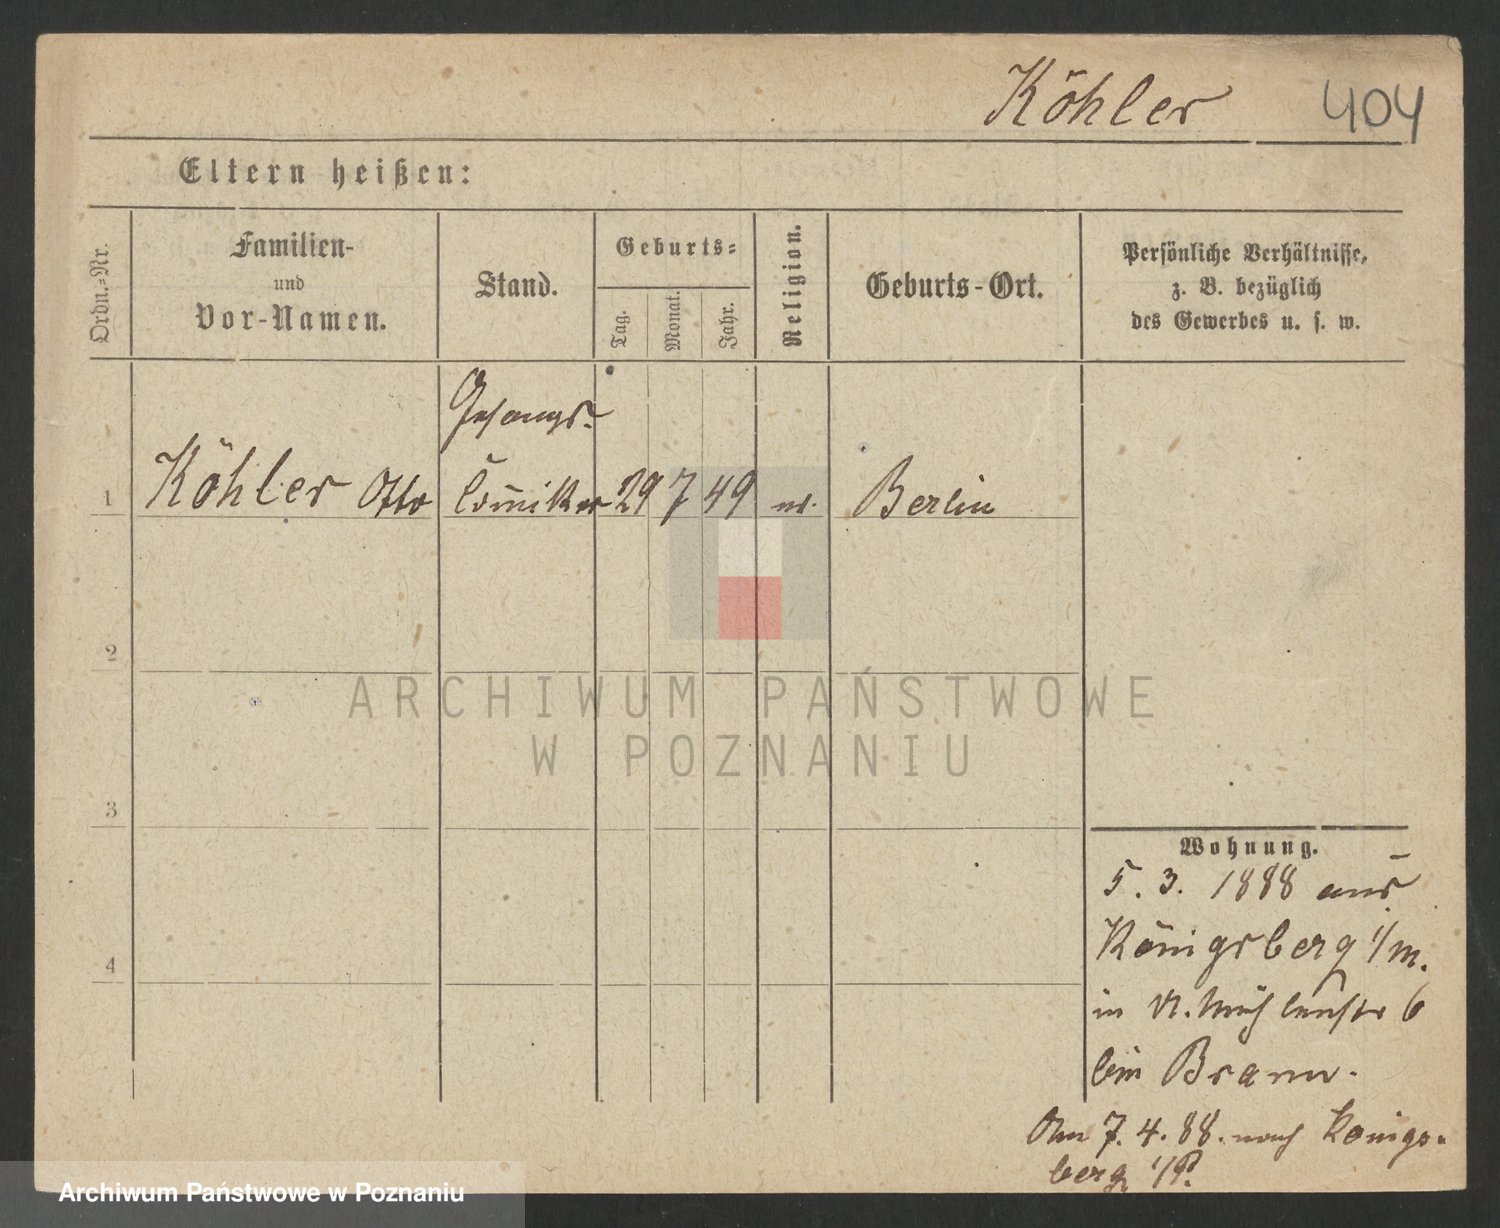 Köhler 404
Eltern heißen:
Ordn.-Nr.
Familien-
und
Vor-Namen.
Stand.
Geburts-
Tag.
Monat.
Jahr.
Religion.
Geburts-Ort.
Persönliche Verhältnisse,
z. B. bezüglich
des Gewerbes u. s. w.
Gesangs-
1 Köhler Otto Comiker 29 7 49 Berlin
2
3
4
Wohnung.
5. 3. 1888 aus
Königsberg i/m.
in Mühlenstr 6
beim
Am 7. 4. 88. nach Königs-
berg i/P.
ARCHIWUM PAŃSTWOWE
W POZNANIU
Archiwum Państwowe w Poznaniu